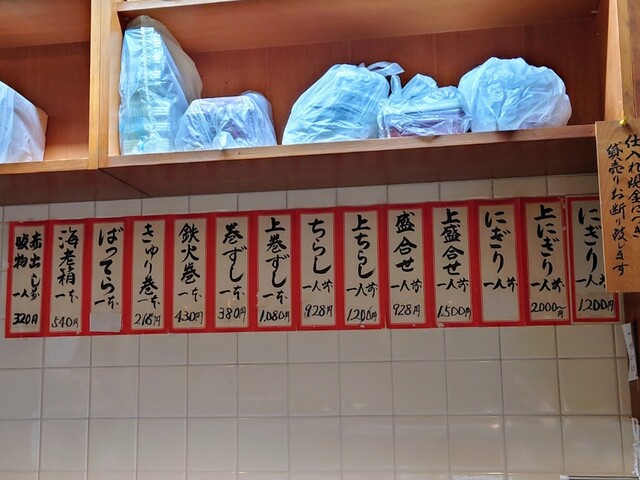 仕入れ現金につき
貸売りお断り致します
にぎり 一人前 1.200円
上にぎり 一人前 2000～円
にぎり 一人前
上盛合せ 一人前 1.500円
盛合せ 一人前 928円
上ちらし 一人前 1.200円
ちらし 一人前 928円
上巻ずし 一本 1.080円
巻ずし 一本 380円
鉄火巻 一本 430円
きゅり巻 一本 216円
ばってら 一本
海老箱 一本 540円
赤出し 一人前
吸物 一人前 320円